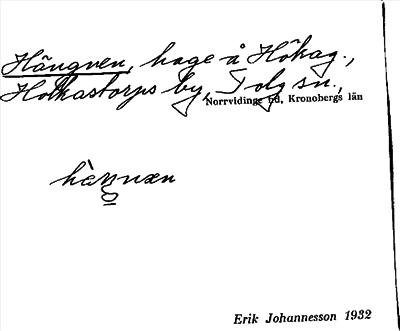 Hängven, hage å Hökag.,
Holkastorps by, Tolg sn.,
Norrvidinge hd, Kronobergs län
Erik Johannesson 1932